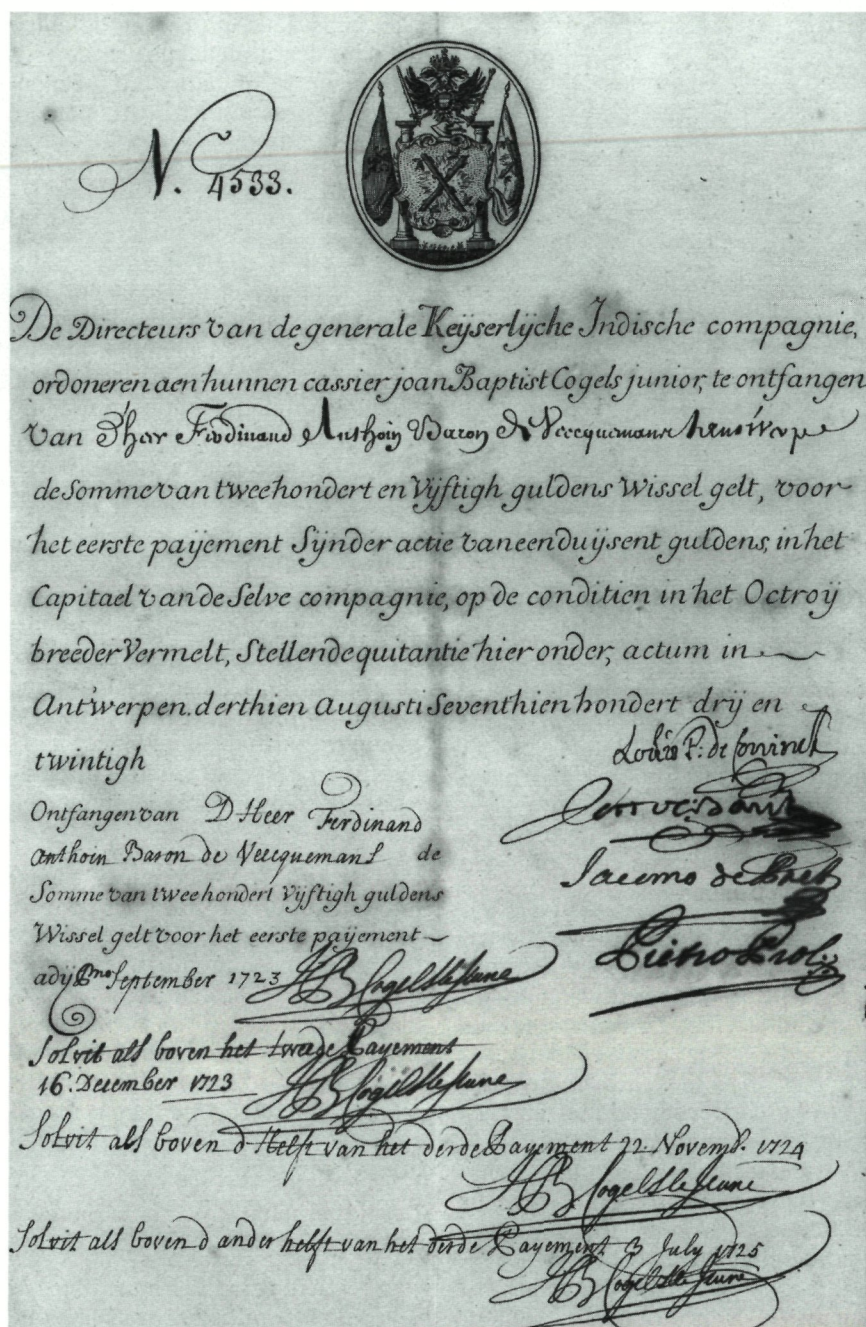 N. 4533.
De Directeurs van de generale Keyserlyche Indische compagnie,
ordoneren aen hunnen cassier joan Baptist Cogels junior, te ontfangen
van D'heer Ferdinand Anthoin Baron de Vecquemans
de Somme van tweehondert en Vijftigh guldens Wissel gelt, voor
het eerste payement Sijnder actie van eenduysent guldens, in het
Capitael van de Selve compagnie, op de conditien in het Octroy
breeder Vermelt, Stellende quitantie hier onder, actum in
Antwerpen. derthien Augusti Seventhien hondert drij en
twintigh
Louis P. de Coninck
Jacomo de Pret
Pietro Proli
Ontfangen van D Heer Ferdinand
Anthoin Baron de Vecquemans de
Somme van tweehondert Vijftigh guldens
Wissel gelt voor het eerste payement
ady Pmo September 1723 JB Cogels le Jeune
Solvit als boven het tweede Payement
16. December 1723 JB Cogels le Jeune
Solvit als boven d Helft van het derde Payement 22 Novemb. 1724
JB Cogels le Jeune
Solvit als boven d ander helft van het derde Payement 3 July 1725
JB Cogels le Jeune